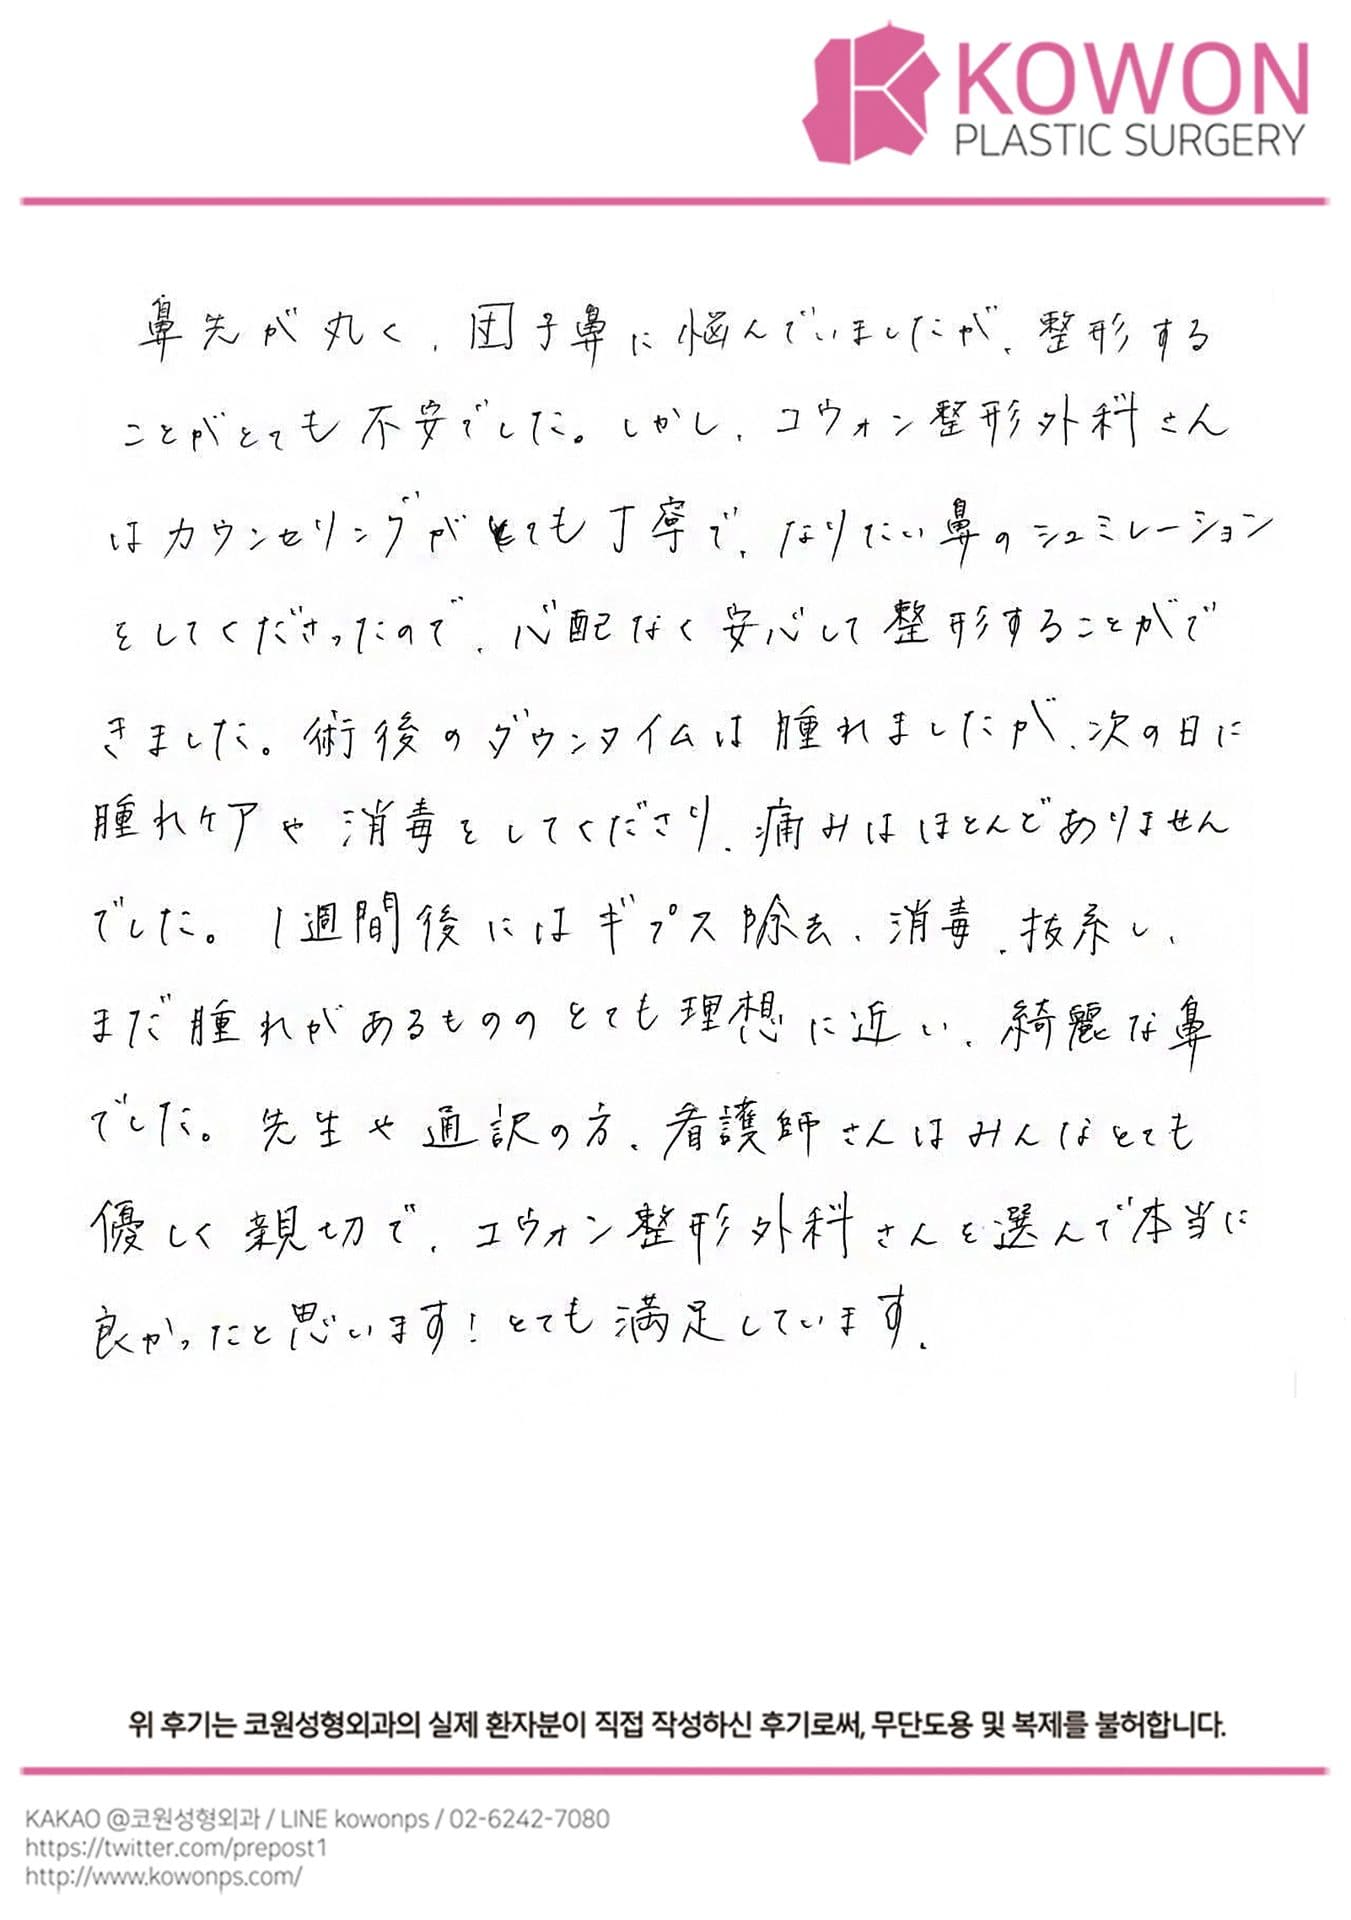 KOWON
PLASTIC SURGERY
鼻先が丸く、団子鼻に悩んでいましたが、整形する
ことがとても不安でした。しかし、コウォン整形外科さん
はカウンセリングがとても丁寧で、なりたい鼻のシュミレーション
をしてくださったので、心配なく安心して整形することがで
きました。術後のダウンタイムは腫れましたが、次の日に
腫れケアや消毒をしてくださり、痛みはほとんどありません
でした。1週間後にはギプス除去、消毒、抜糸し、
まだ腫れがあるもののとても理想に近い、綺麗な鼻
でした。先生や通訳の方、看護師さんはみんなとても
優しく親切で、コウォン整形外科さんを選んで本当に
良かったと思います!とても満足しています。
위 후기는 코원성형외과의 실제 환자분이 직접 작성하신 후기로써, 무단도용 및 복제를 불허합니다.
KAKAO @코원성형외과 / LINE kowonps / 02-6242-7080
https://twitter.com/prepost1
http://www.kowonps.com/